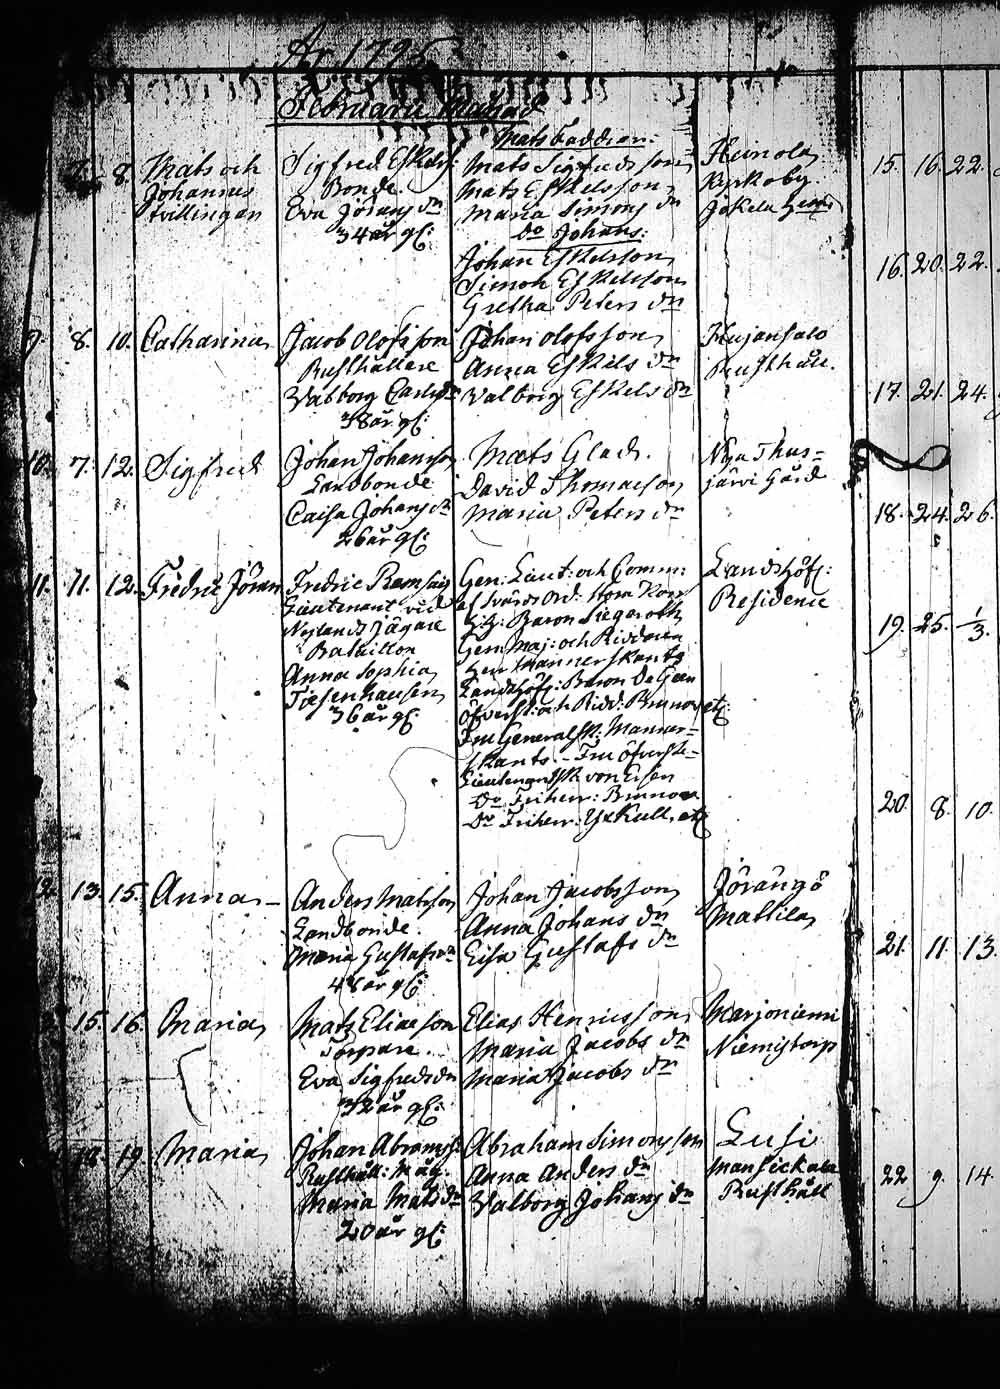 År 1795
Februarii Månad
Mats Faddrar:
8. Mats och
Johannes
tvillingar
Sigfred Eskelss:
Bonde
Eva Jörans dr
34 år gl:
Mats Sigfredsson
Mats Eskelsson
Maria Simons dr
Do Johans:
Johan Eskelsson
Simon Eskelsson
Gretha Peters dr
Heinola
Kyrkoby
Jokela
9. 8. 10. Catharina
Jacob Olofsson
Rusthållare
Valborg Carls dr
38 år gl:
Johan Olofsson
Anna Eskels dr
Valborg Eskels dr
Hujansalo
Rusthåll.
10. 7. 12. Sigfred
Johan Johansson
Landbonde
Caisa Johans dr
26 år gl:
Mats Glad.
David Thomasson
Maria Peters dr
Nya Thus-
järvi Gård
11. 11. 12. Fredric Jöran
Fredric Ramsay
Lieutenant vid
Nylands Jägare
Bataillon
Anna Sophia
Tiesenhausen
36 år gl:
Gen: Lieut: och Comm:
af Svärds Ord: stora Kors
Baron Siegeroth
Gen: Maj: och Riddaren
Herr Mannerskantz
Landshöfd: Baron De Geer
Öfverst: och Ridd: Brunow etc:
Fru Generalsk: Manner-
skants - Fru Öfverste-
Lieutenantsk von Essen
Do Friherr: Brunow
Do Friherr: Yxkull, etc
Landshöfd:
Residence
12. 13. 15. Anna
Anders Matsson
Landbonde.
Maria Gustafs dr
48 år gl:
Johan Jacobsson
Anna Johans dr
Eisa Gustafs dr
Jörängö
Mattila
15. 16. Maria
Mats Eliaeson
Torpare.
Eva Sigfreds dr
32 år gl:
Elias Henricsson
Maria Jacobs dr
Maria Jacobs dr
Marjoniemi
Niemis torp
18. 19 Maria
Johan Abramss:
Rusthåll: Måg.
Maria Mats dr
20 år gl:
Abraham Simonsson
Anna Anders dr
Valborg Johans dr
Lusi
Mansickala
Rusthåll
15. 16. 22.
16. 20. 22.
17. 21. 24.
18. 24. 26.
19. 25. 1/3.
20. 8. 10.
21. 11. 13.
22 9. 14.